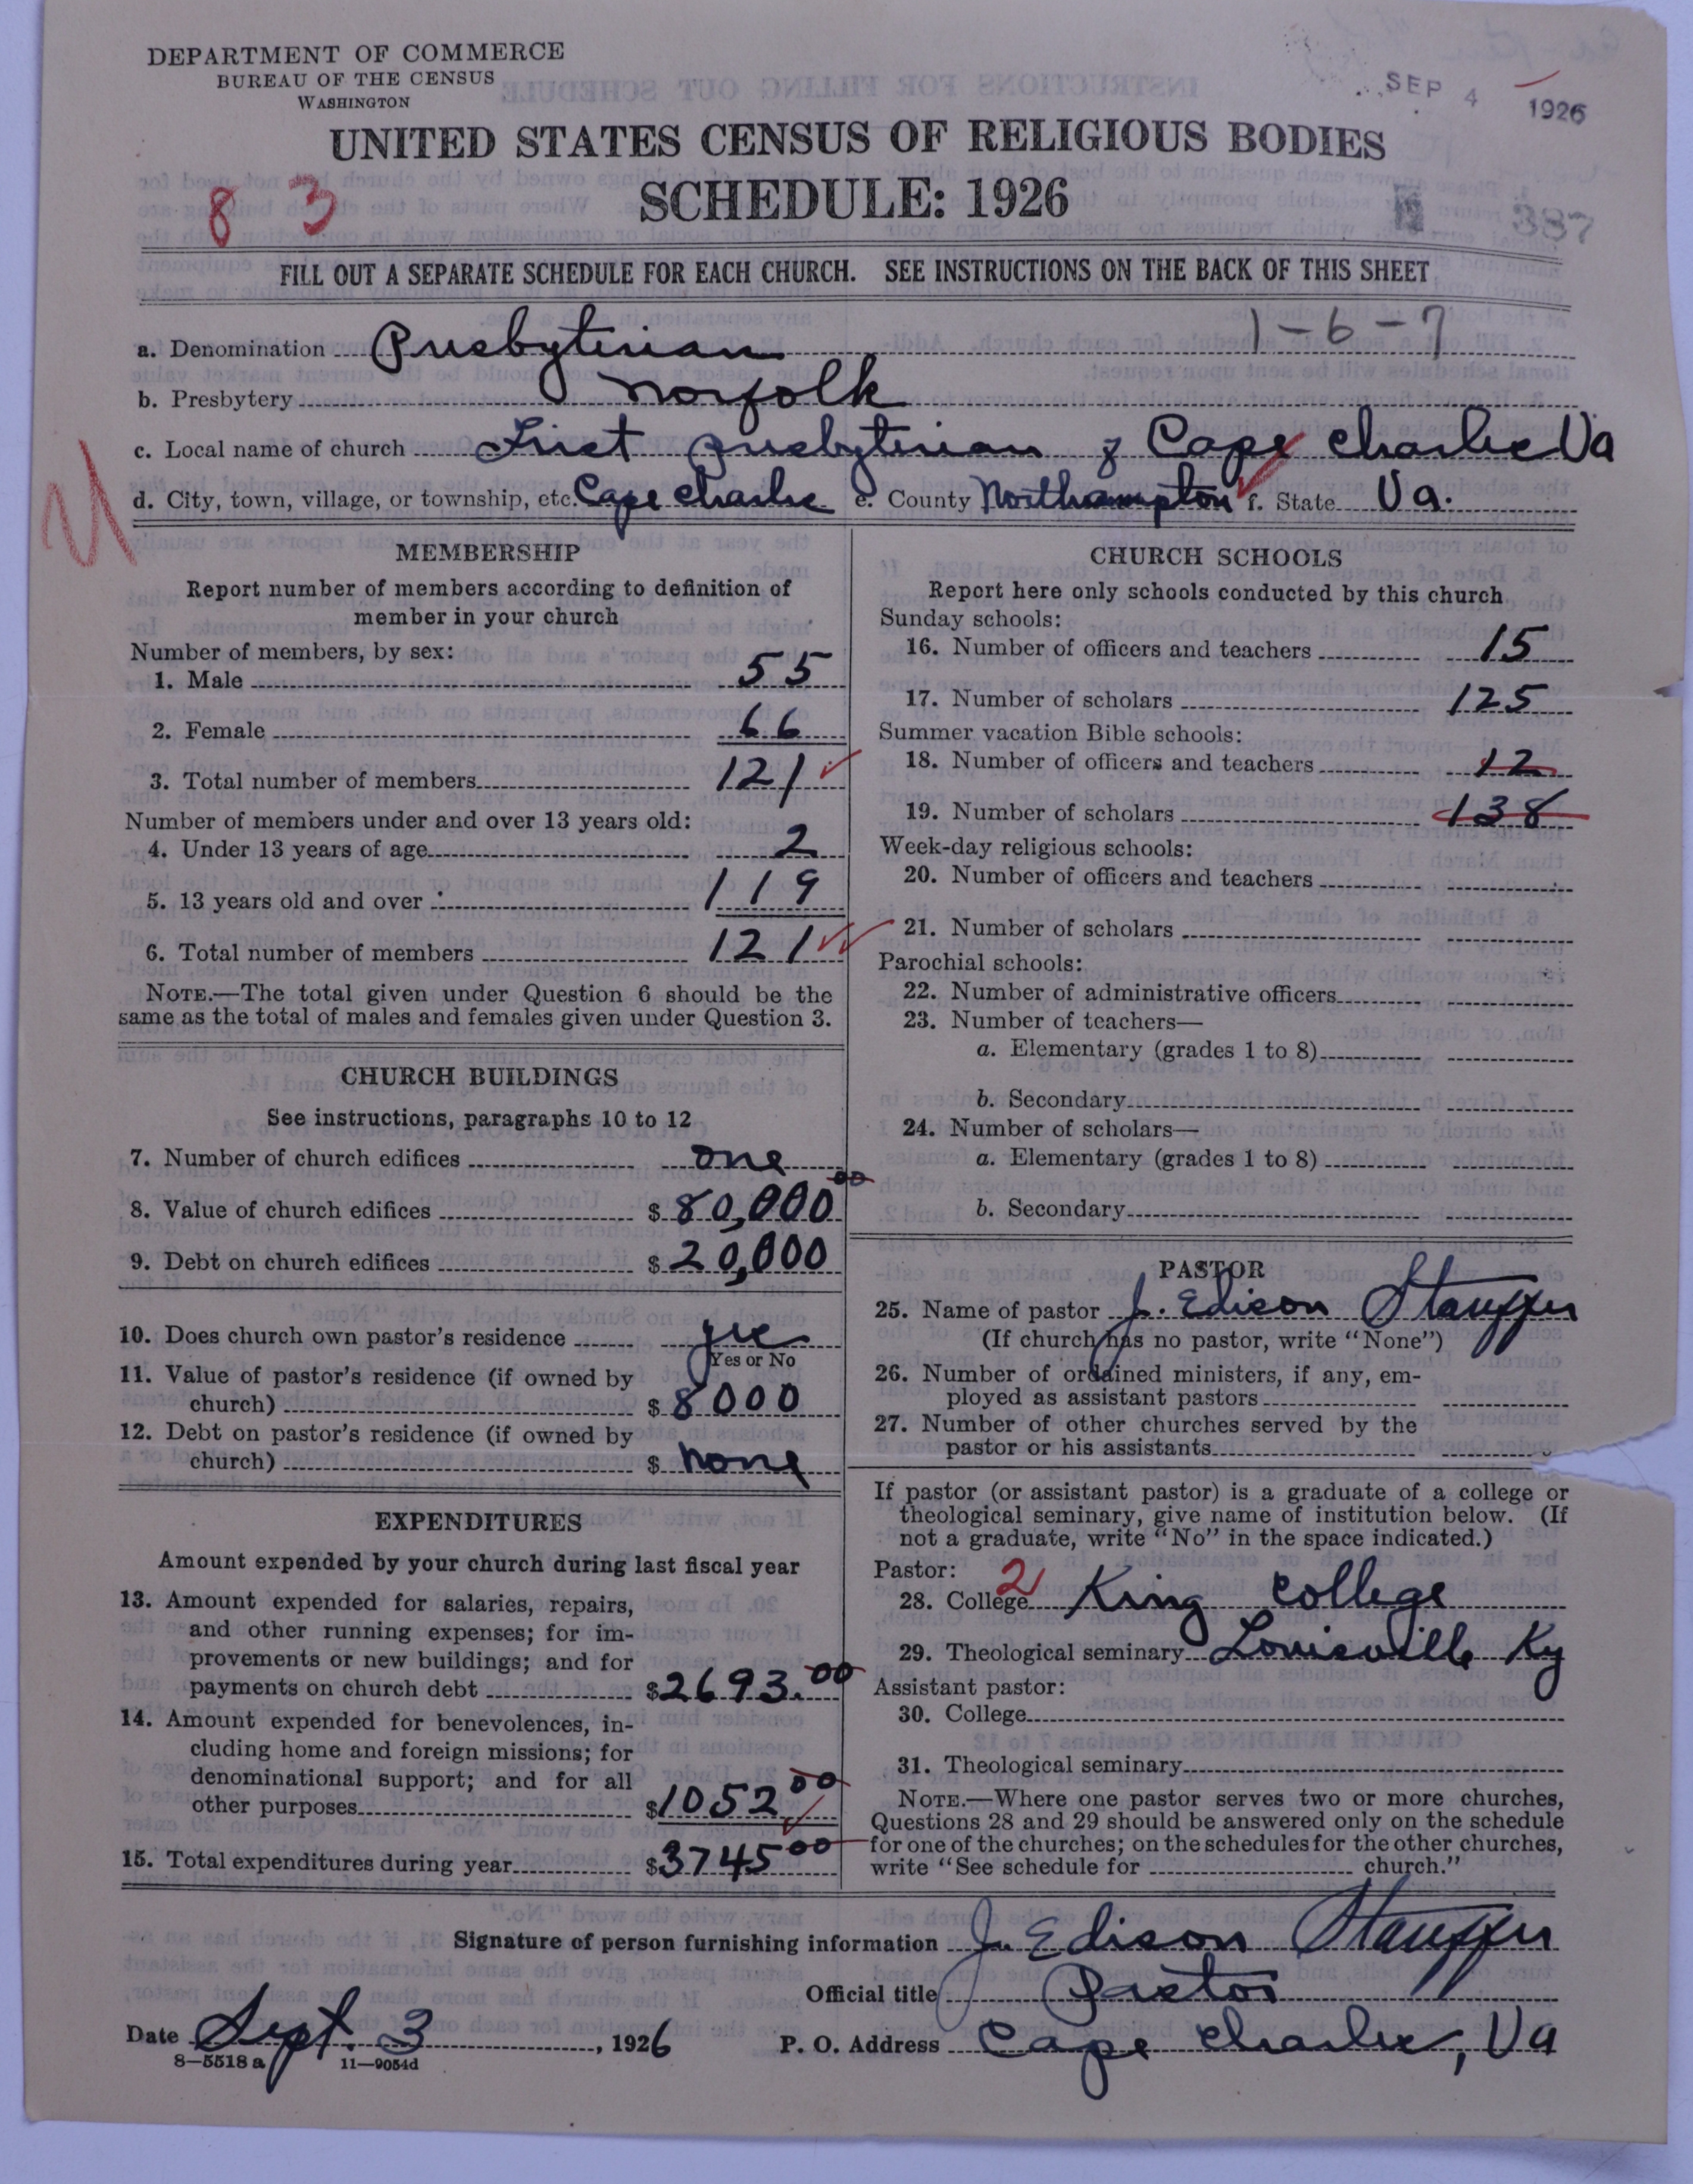 DEPARTMENT OF COMMERCE
BUREAU OF THE CENSUS
WASHINGTON
SEP 4 1926
UNITED STATES CENSUS OF RELIGIOUS BODIES
SCHEDULE: 1926
8 3
387
FILL OUT A SEPARATE SCHEDULE FOR EACH CHURCH. SEE INSTRUCTIONS ON THE BACK OF THIS SHEET
1-6-7
a. Denomination Presbyterian
b. Presbytery Norfolk
c. Local name of church First Presbyterian of Cape Charles Va
d. City, town, village, or township, etc. Cape Charles e. County Northampton f. State Va.
MEMBERSHIP
Report number of members according to definition of
member in your church
Number of members, by sex:
1. Male 55
2. Female 66
3. Total number of members 121
Number of members under and over 13 years old:
4. Under 13 years of age 2
5. 13 years old and over 119
6. Total number of members 121
NOTE.—The total given under Question 6 should be the
same as the total of males and females given under Question 3.
CHURCH BUILDINGS
See instructions, paragraphs 10 to 12
7. Number of church edifices one
8. Value of church edifices $ 80,000 00
9. Debt on church edifices $ 20,000
10. Does church own pastor's residence yes
Yes or No
11. Value of pastor's residence (if owned by
church) $ 8000
12. Debt on pastor's residence (if owned by
church) $ none
EXPENDITURES
Amount expended by your church during last fiscal year
13. Amount expended for salaries, repairs,
and other running expenses; for im-
provements or new buildings; and for
payments on church debt $ 2693.00
14. Amount expended for benevolences, in-
cluding home and foreign missions; for
denominational support; and for all
other purposes $ 1052 00
15. Total expenditures during year $ 3745 00
CHURCH SCHOOLS
Report here only schools conducted by this church
Sunday schools:
16. Number of officers and teachers 15
17. Number of scholars 125
Summer vacation Bible schools:
18. Number of officers and teachers 12
19. Number of scholars 138
Week-day religious schools:
20. Number of officers and teachers
21. Number of scholars
Parochial schools:
22. Number of administrative officers
23. Number of teachers—
a. Elementary (grades 1 to 8)
b. Secondary
24. Number of scholars—
a. Elementary (grades 1 to 8)
b. Secondary
PASTOR
25. Name of pastor J. Edison Stauffer
(If church has no pastor, write "None")
26. Number of ordained ministers, if any, em-
ployed as assistant pastors
27. Number of other churches served by the
pastor or his assistants
If pastor (or assistant pastor) is a graduate of a college or
theological seminary, give name of institution below. (If
not a graduate, write "No" in the space indicated.)
Pastor:
28. College 2 King College
29. Theological seminary Louisville Ky
Assistant pastor:
30. College
31. Theological seminary
NOTE.—Where one pastor serves two or more churches,
Questions 28 and 29 should be answered only on the schedule
for one of the churches; on the schedules for the other churches,
write "See schedule for church."
Signature of person furnishing information J. Edison Stauffer
Official title Pastor
Date Sept. 3, 1926 P. O. Address Cape Charles, Va
8—5518 a 11—9054d